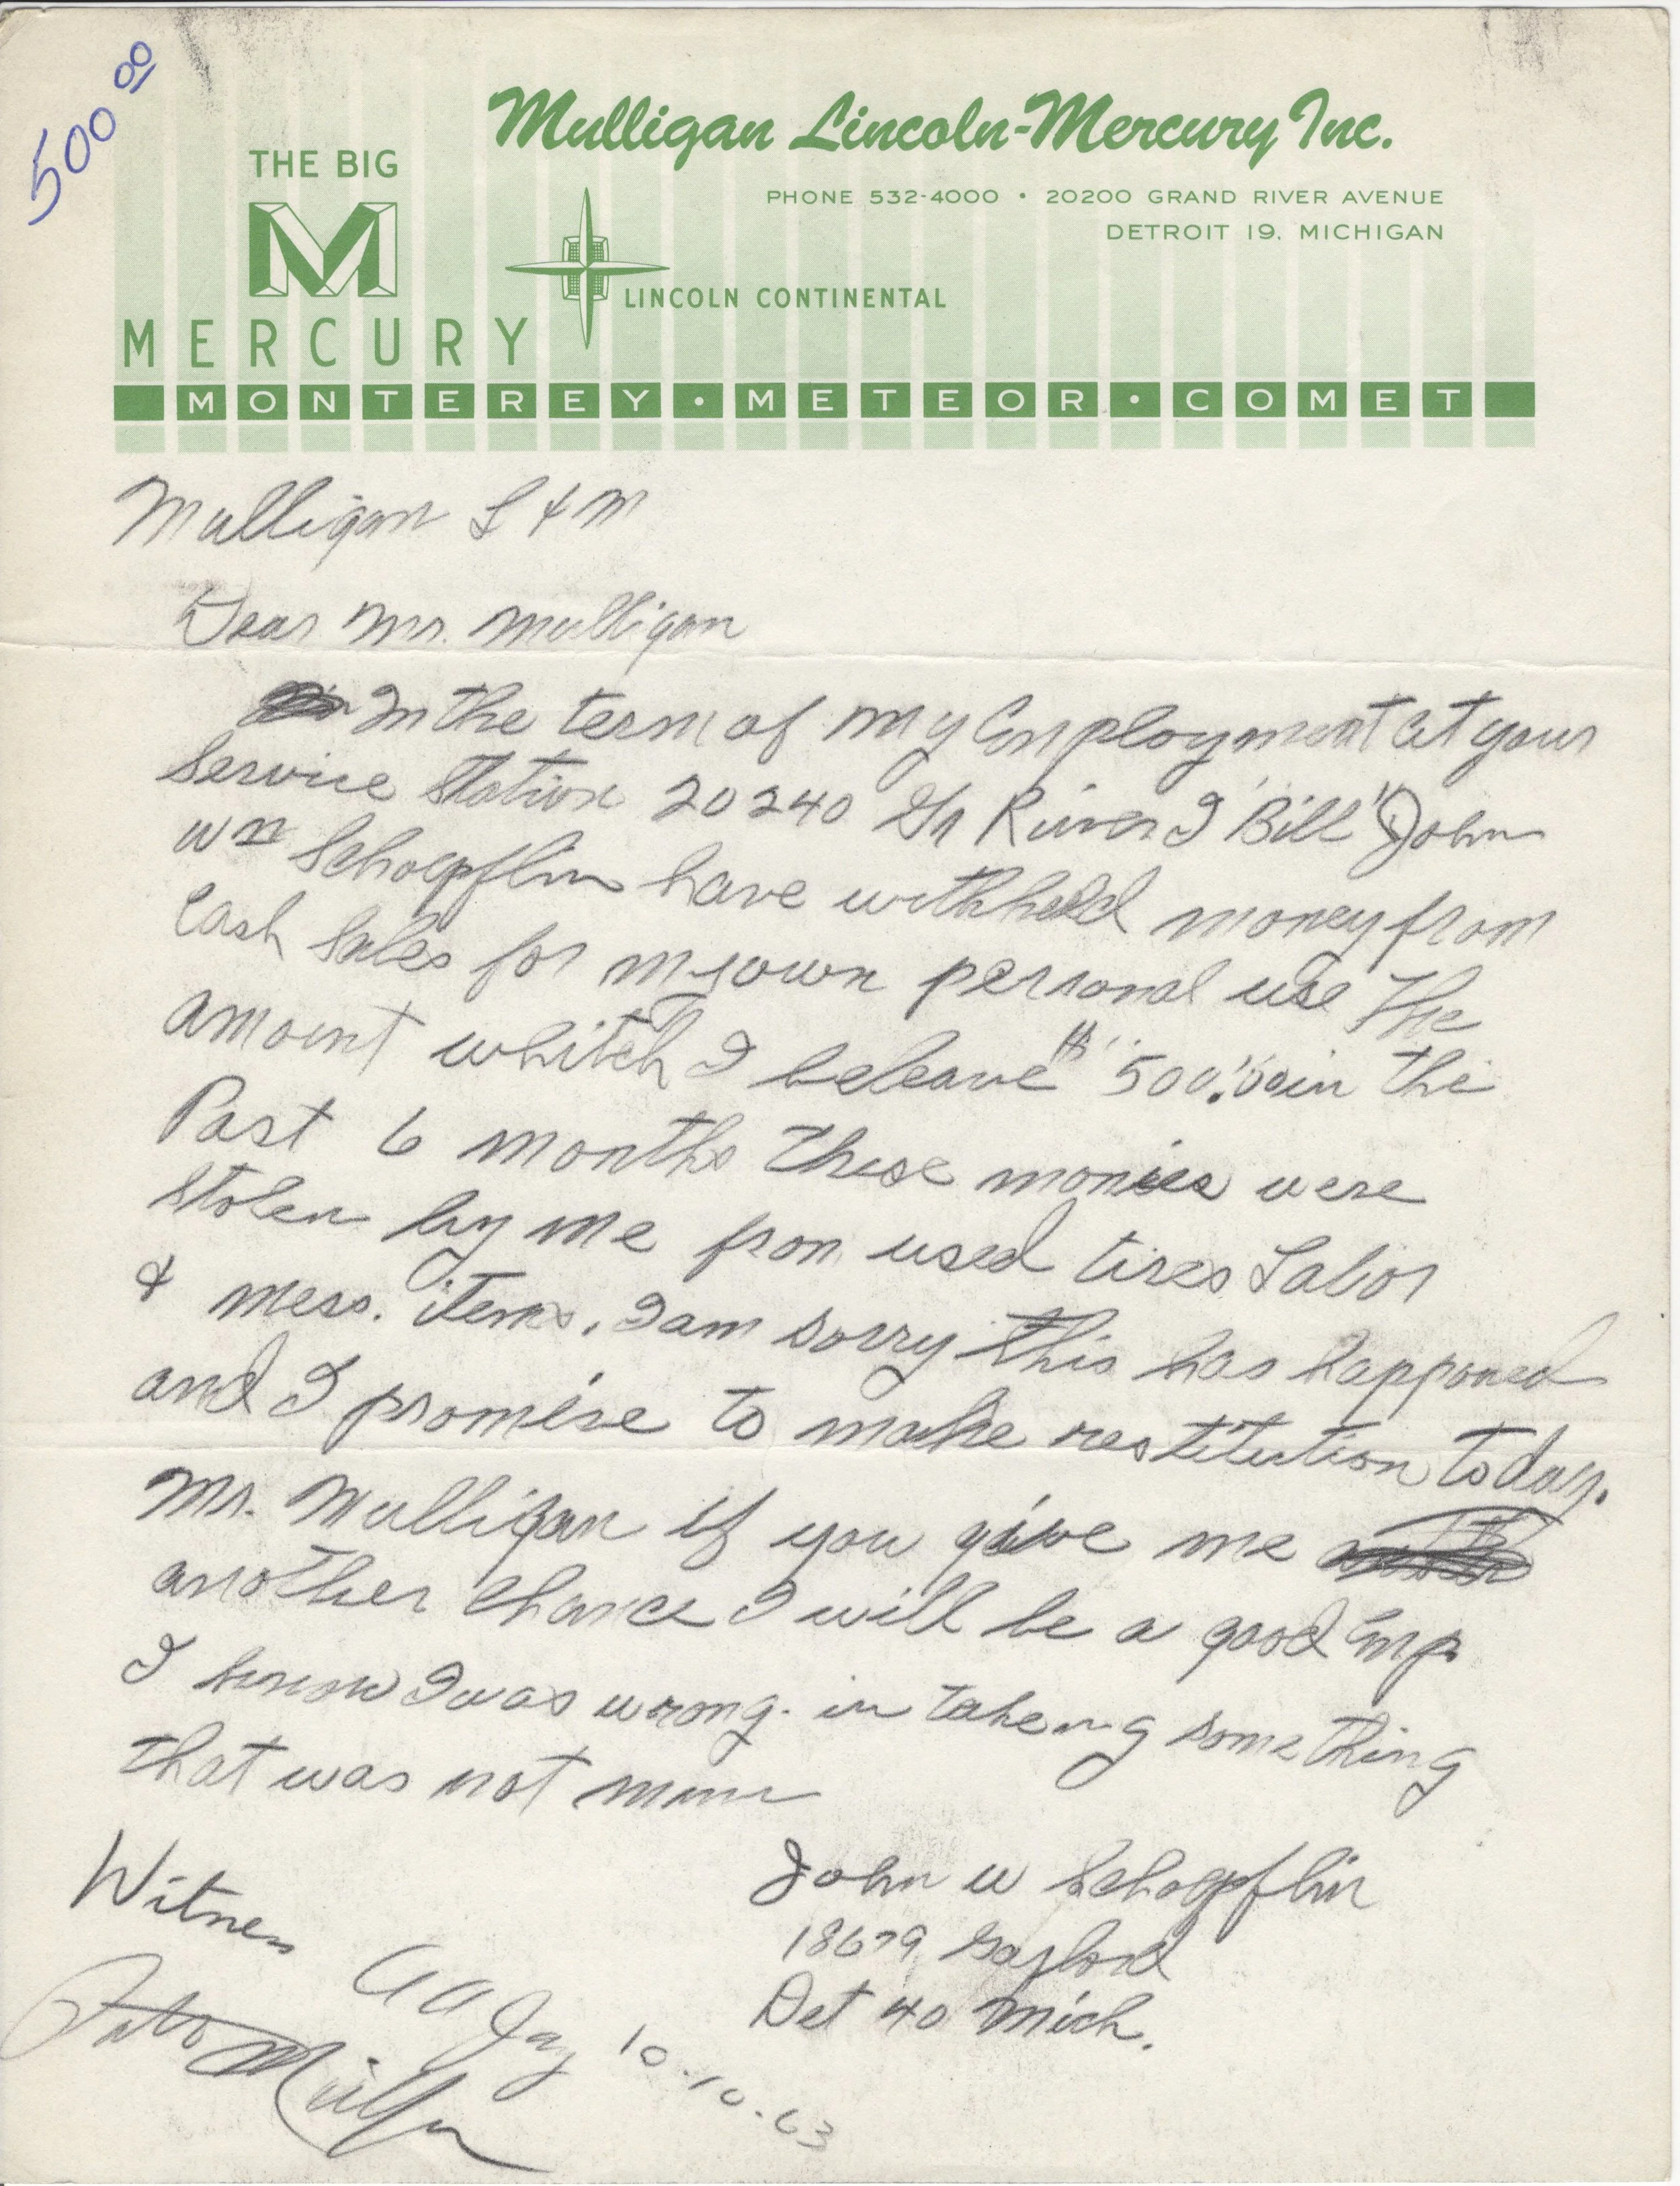 500 00
Mulligan Lincoln-Mercury Inc.
PHONE 532-4000 • 20200 GRAND RIVER AVENUE
DETROIT 19, MICHIGAN
THE BIG
M
MERCURY
LINCOLN CONTINENTAL
MONTEREY • METEOR • COMET
Mulligan L & M
Dear Mr. Mulligan
In the term of my Employment at your
Service Station 20240 Gr River I "Bill" John
Wm Schoepflin have withheld money from
Cash Sales for my own personal use The
amount whitch I beleave $ "500.00" in the
Past 6 months These monies were
stolen by me from used tires Labor
& mess. items. I am sorry this has happoned
and I promise to make restitution today.
Mr. Mulligan if you give me
another chance I will be a good Emp.
I know I was wrong. in takeing something
that was not mine
John W Schoepflin
18679 Gaylord
Det 40 Mich.
Witness
10-10-63